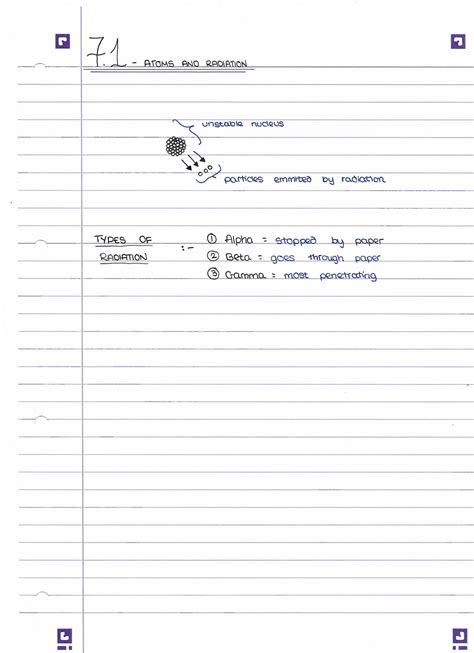 7.1 - ATOMS AND RADIATION
unstable nucleus
particles emmited by radiation
TYPES OF RADIATION :-
① Alpha = stopped by paper
② Beta = goes through paper
③ Gamma = most penetrating